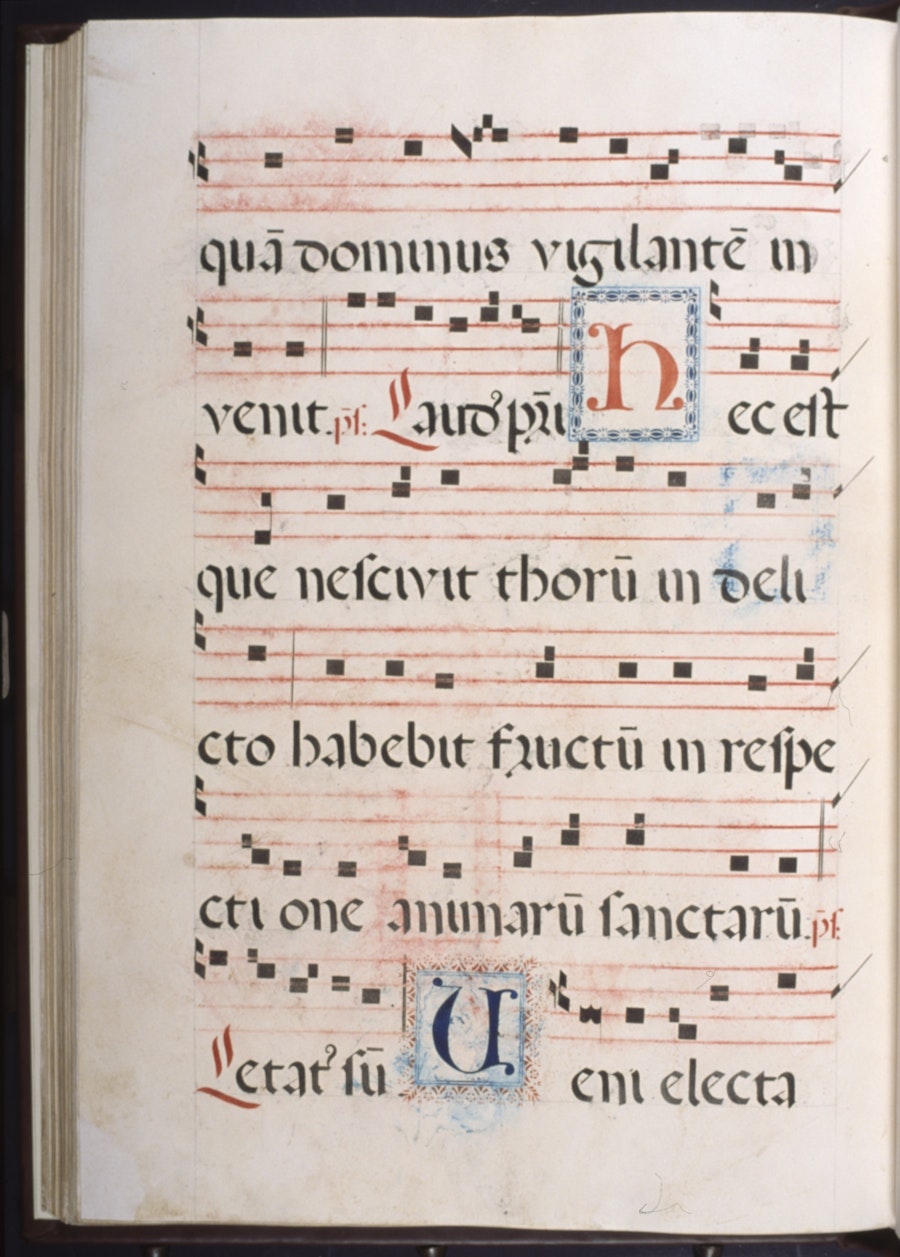 quā dominus vigilantē in
venit. ps̄: Laud' pr̄i Hec est
que nescivit thorū in deli
cto habebit fructū in respe
cti one animarū sanctarū. ps̄:
Letat' sū Veni electa